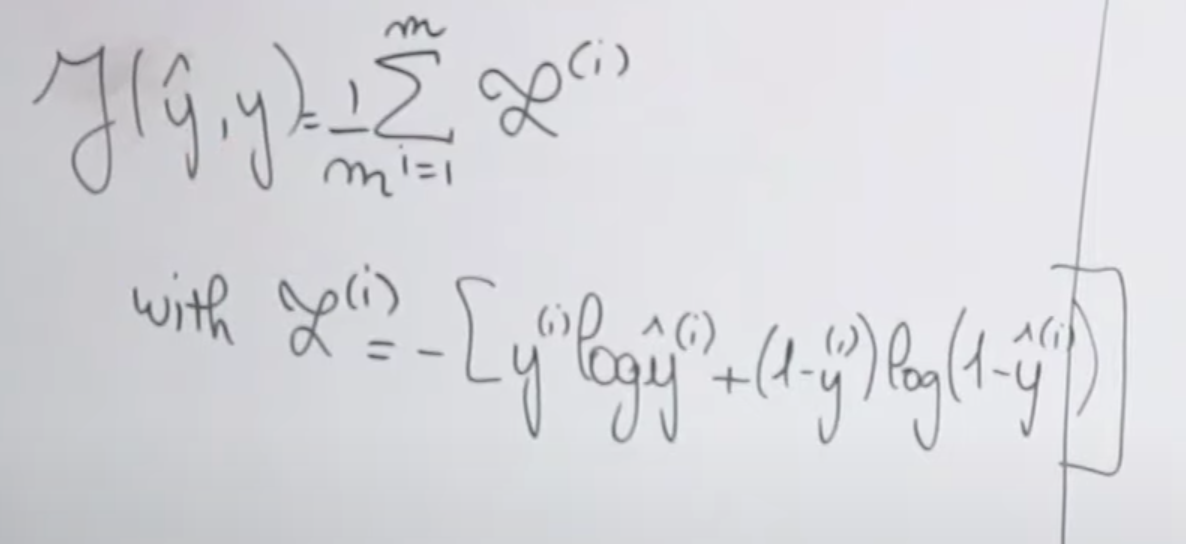 J(ŷ,y) = 1/m Σ_{i=1}^{m} ℒ^(i)
with ℒ^(i) = -[y^(i) log ŷ^(i) + (1-y^(i)) log(1-ŷ^(i))]